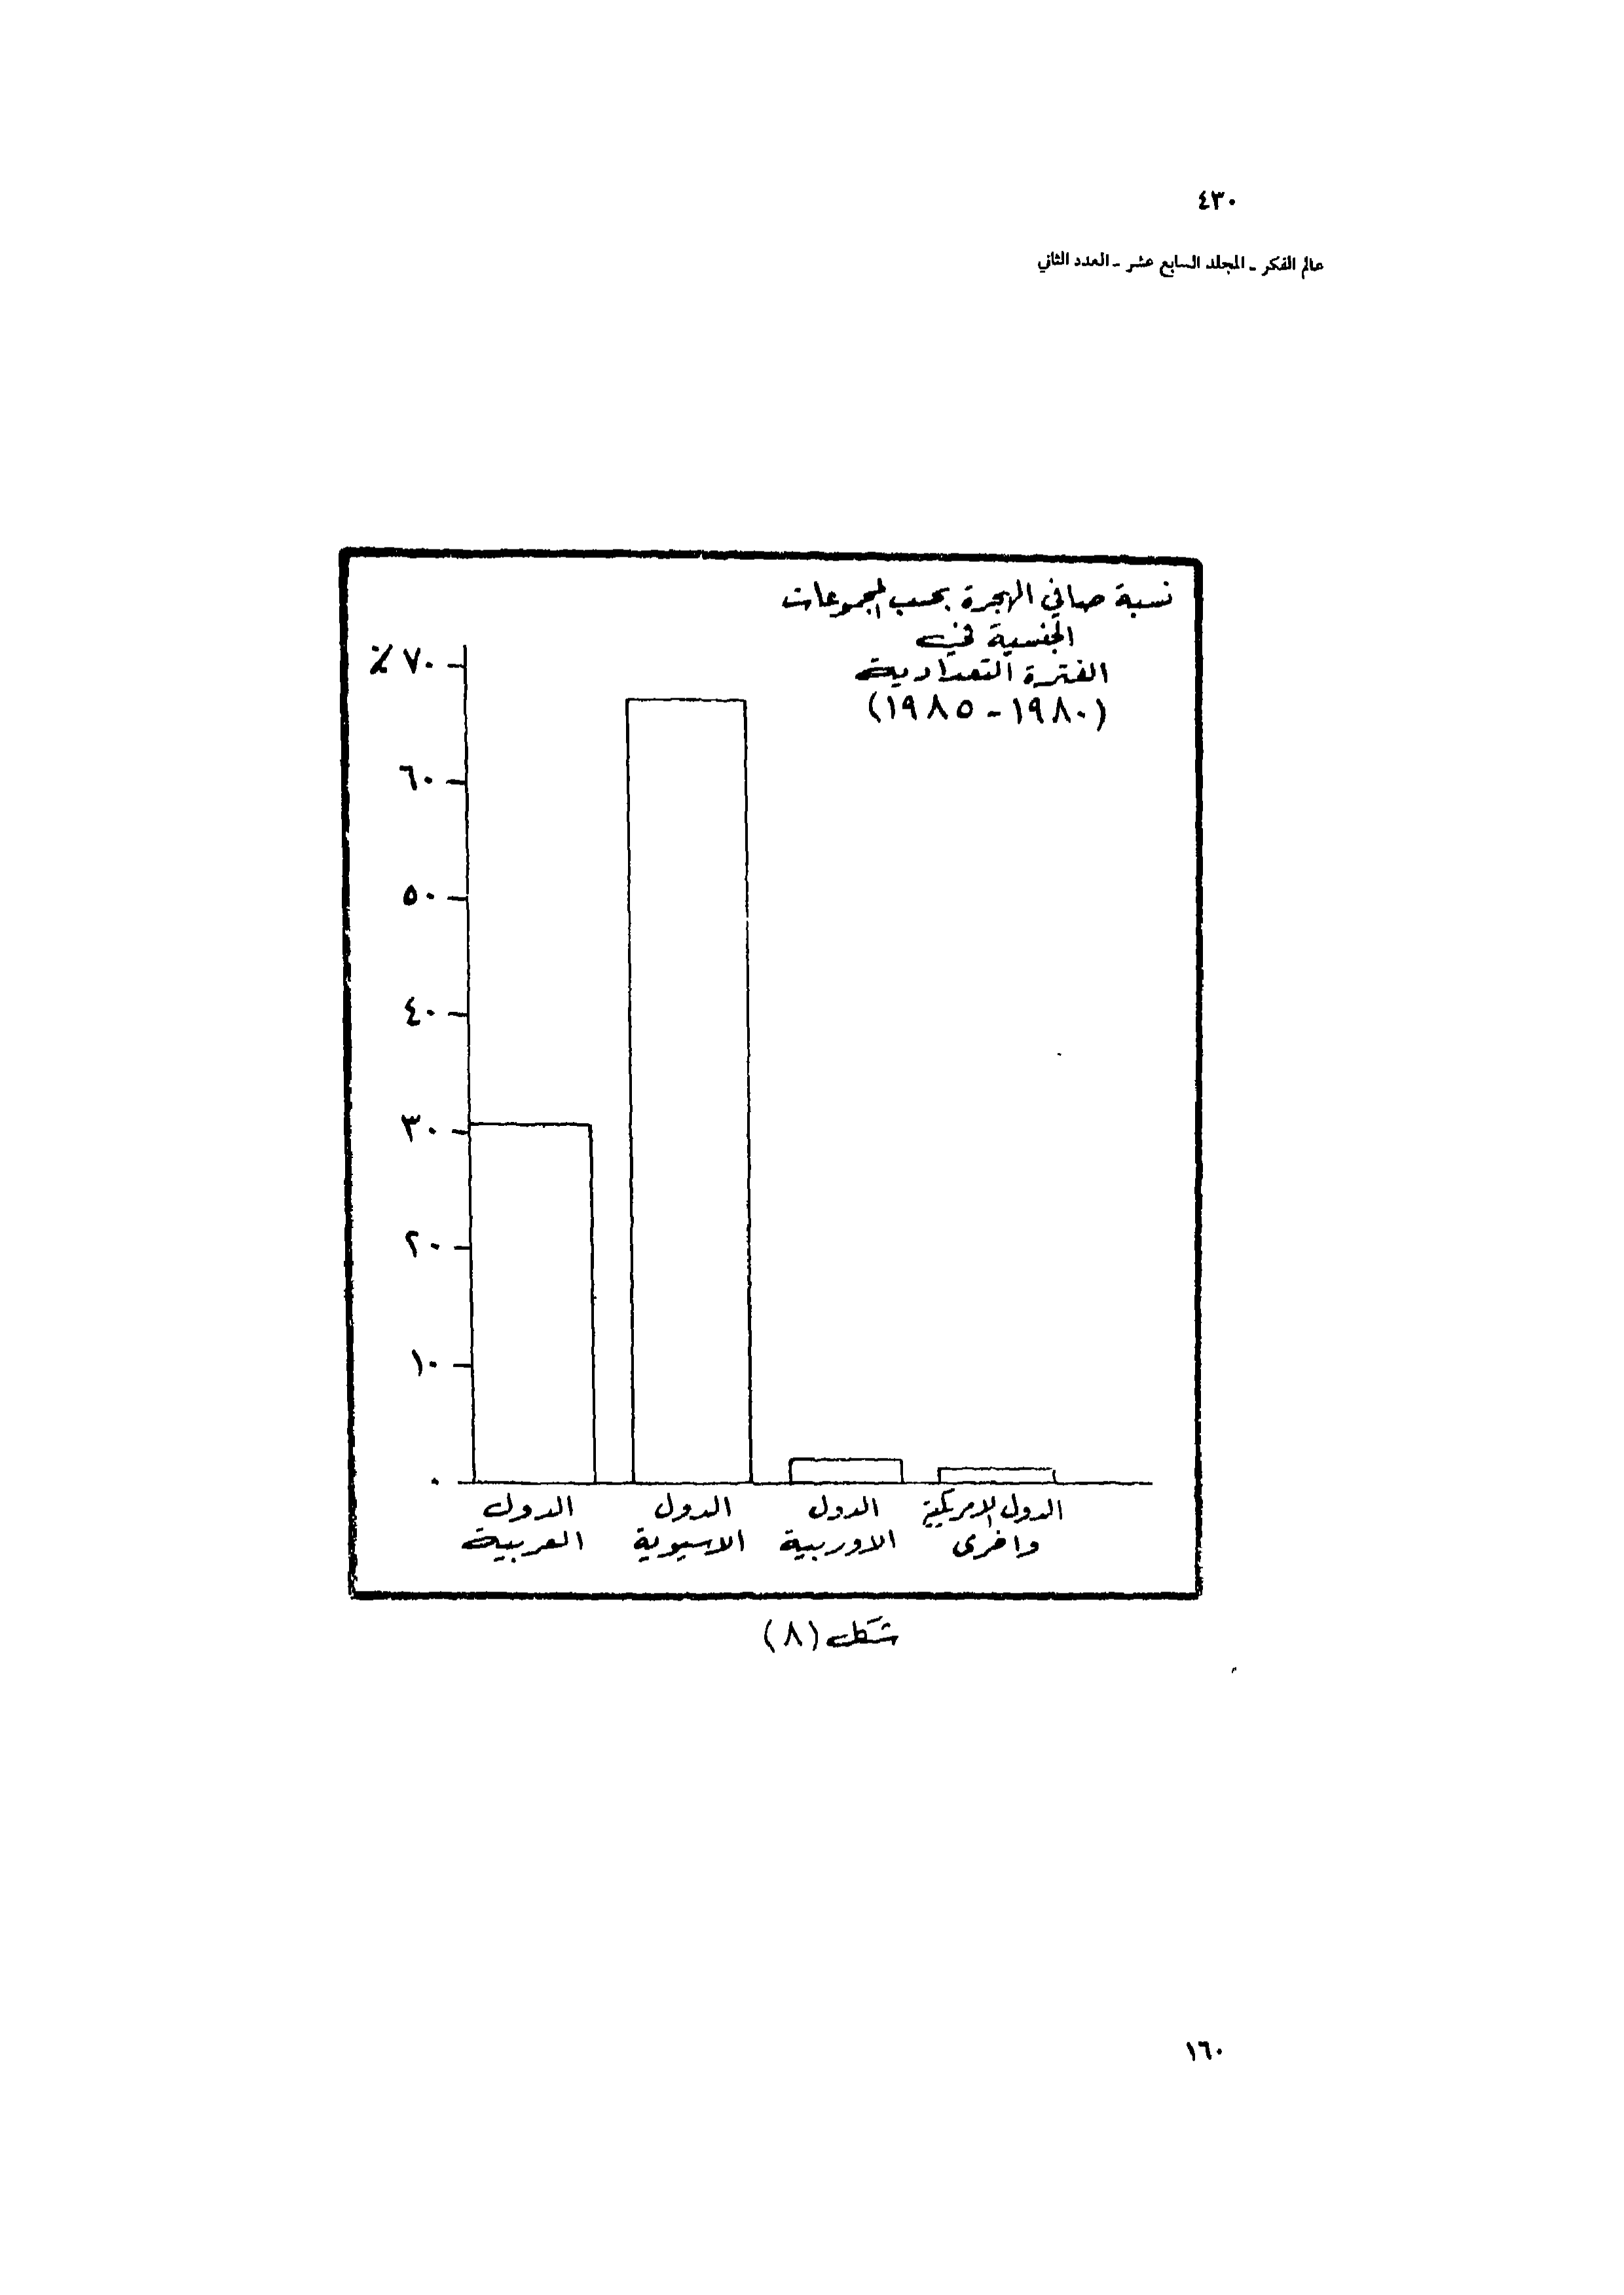 ٤٣٠
عالم الفكر ـ المجلد السابع عشر ـ العدد الثاني
نسبة صافي الهجرة بحسب المجموعات
الجنسية في
الفترة التعدادية
(١٩٨٠ - ١٩٨٥)
٧٠ ٪
٦٠
٥٠
٤٠
٣٠
٢٠
١٠
٠
الدول العربية
الدول الاسيوية
الدول الاوربية
الدول الامريكية واخرى
شكل (٨)
١٦٠